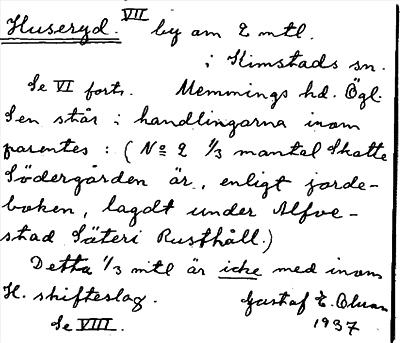 Huseryd. VII by om 2 mtl.
i Kimstads sn.
Se VI forts. Memmings hd. Ögl.
Sen står i handlingarna inom
parentes: (No 2 1/3 mantal Skatte
Södergården är, enligt jorde-
boken, lagdt under Alfve-
stad Säteri Rusthåll.)
Detta 1/3 mtl är icke med inom
H. skifteslag. Gustaf E.
Se VIII. 1937